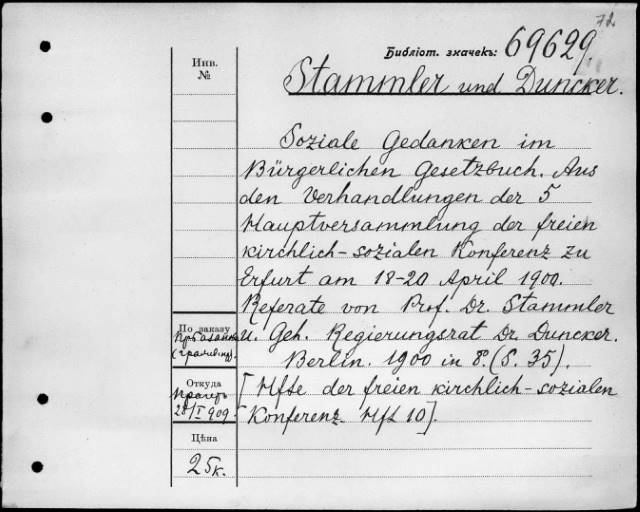 72.
Библіот. значекъ: 69629
Инв.
№
Stammler und Duncker.
Soziale Gedanken im
Bürgerlichen Gesetzbuch. Aus
den Verhandlungen der 5
Hauptversammlung der freien
kirchlich-sozialen Konferenz zu
Erfurt am 18-20 April 1900.
Referate von Prof. Dr. Stammler
u. Geh. Regierungsrat Dr. Duncker.
Berlin. 1900 in 8º. (S. 35).
[Hfte der freien kirchlich-sozialen
Konferenz. Hft 10].
По заказу
Откуда
28/I 909
Цѣна
25к.